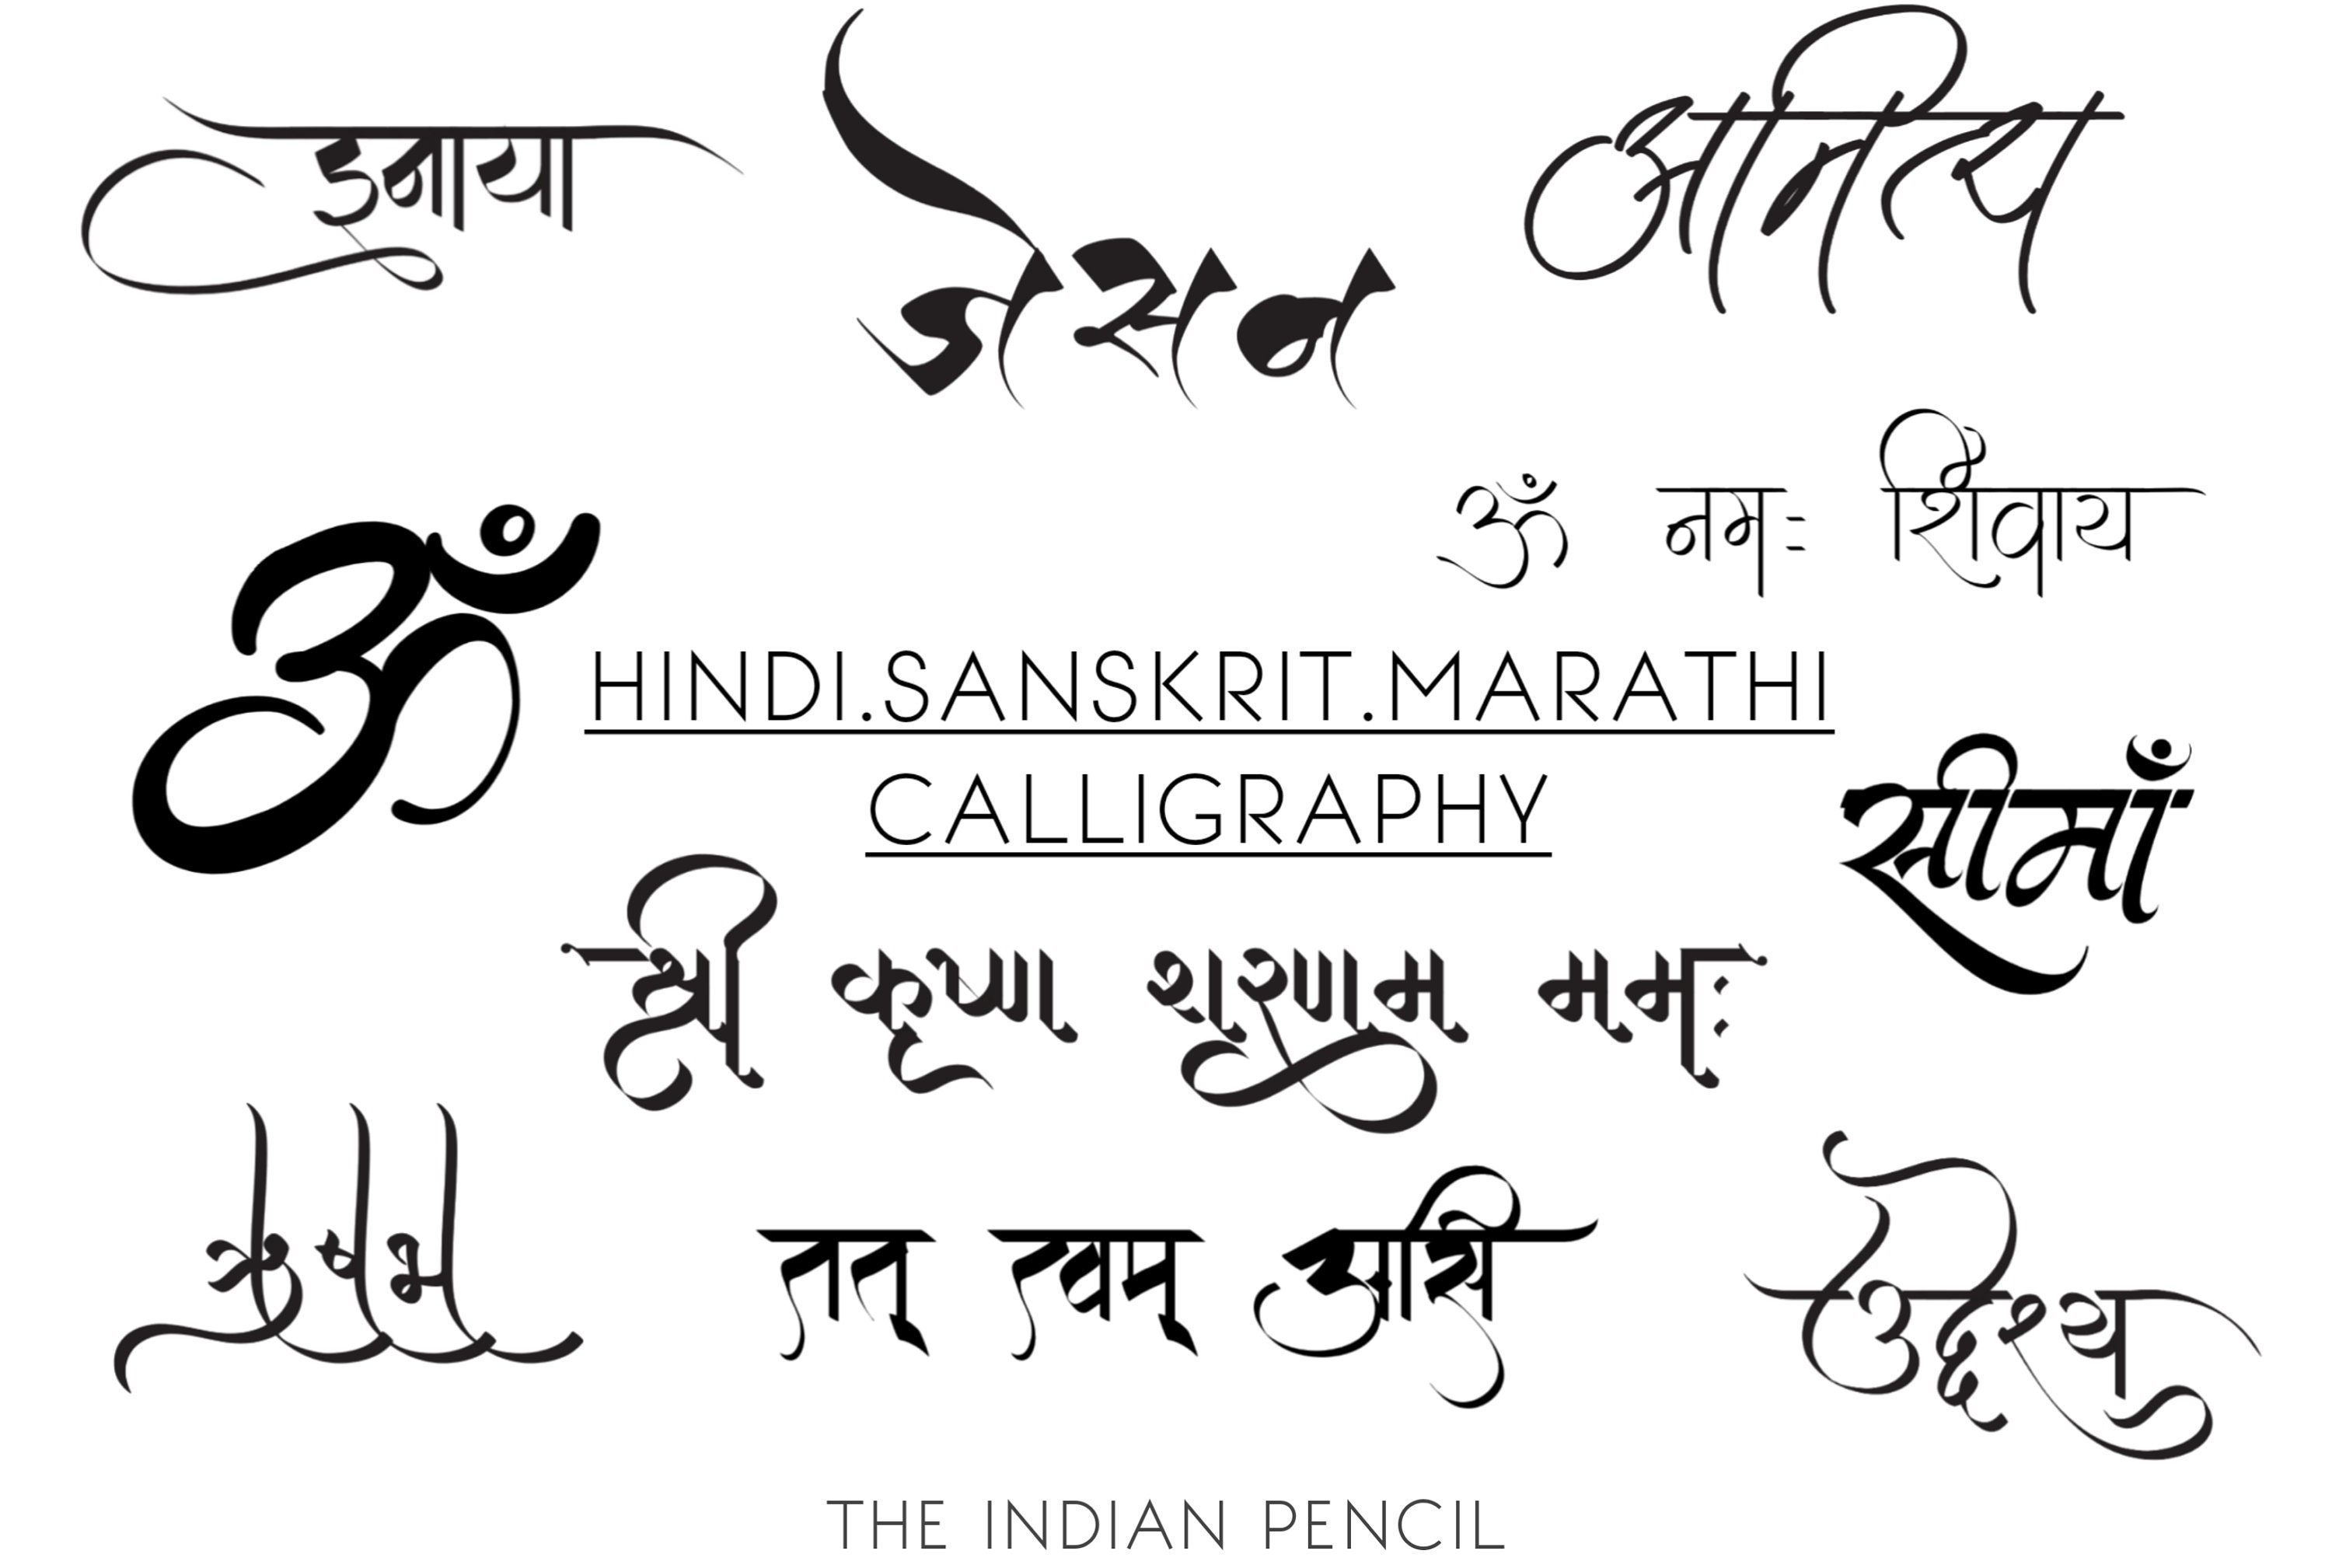 इनाया
जेसन
ॐ नमः शिवाय
ॐ
HINDI.SANSKRIT.MARATHI
CALLIGRAPHY
सीमाँ
श्री कृष्ण शरणम ममः
ऋषभ
तत् त्वम् असि
उद्देश्य
THE INDIAN PENCIL